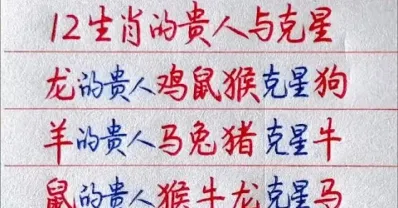 12生肖的贵人与克星
龙的贵人鸡鼠猴克星狗
羊的贵人马兔猪克星牛
鼠的贵人猴牛龙克星马